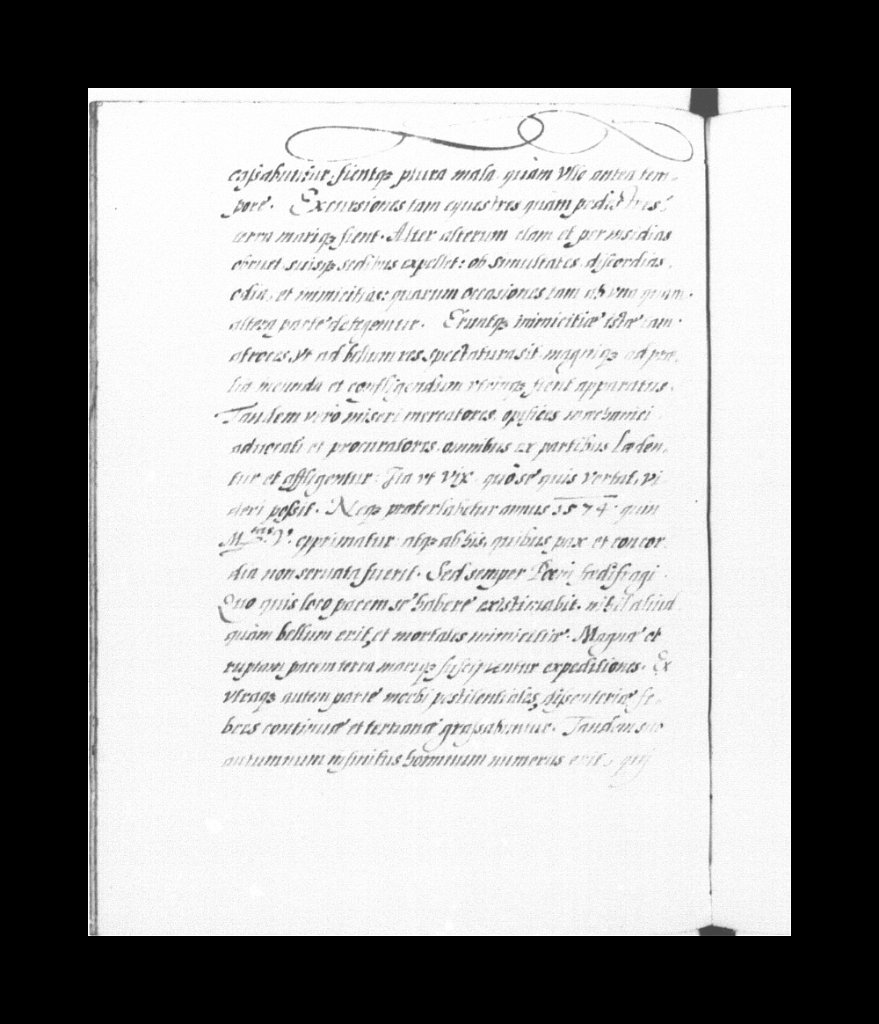 fientq₃ plura mala quàm vllo antea tem-
pore. Excursiones tam equestres quàm pedestres,
terra mariq₃ fient. Alter alterum clam et per insidias
obruet suisq₃ sedibus expellet: ob simultates, discordias,
odia, et inimicitias: quarum occasiones tam ab vna quàm
altera parte detegentur. Eruntq₃ inimicitiæ istæ tam
atroces, vt ad bellum res spectatura sit, magniq₃ ad præ-
lia ineunda et confligendum vtrinq₃ fient apparatus.
Tandem verò miseri mercatores, opifices mechanici
aduocati et procuratores, omnibus ex partibus læden-
tur et affligentur. Ita vt vix quò se quis vertat, vi-
deri possit. Neq₃ præterlabetur annus 1574 quin
V. opprimatur atq₃ ab his, quibus pax et concor-
dia non seruata fuerit. Sed semper fœdifragi.
Quo quis loco pacem se habere existimabit, nihil aliud
quàm bellum erit, et mortales inimicitiæ. Magnæ et
ruptam pacem terra mariq₃ suscipientur expeditiones. Ex
vtraq₃ autem parte morbi pestilentiales, dysenteriæ, fe-
bres continuæ et tertianæ grassabuntur. Tandem sub
autumnum infinitus hominum numerus erit, qui